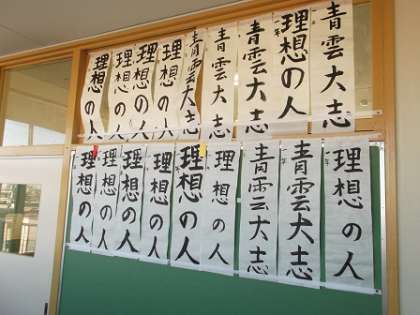 理想の人
理想の人
理想の人
理想の人
青雲大志
青雲大志
青雲大志
理想の人
青雲大志
理想の人
理想の人
理想の人
理想の人
理想の人
理想の人
青雲大志
青雲大志
理想の人